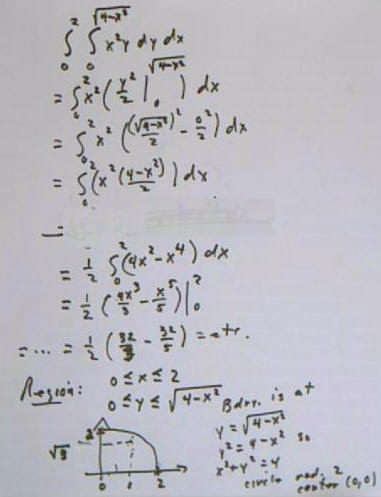 ∫₀² ∫₀^√(4-x²) x²y dy dx
= ∫₀² x² ( y²/2 |₀^√(4-x²) ) dx
= ∫₀² x² ( (√(4-x²))²/2 - 0²/2 ) dx
= ∫₀² ( x² (4-x²)/2 ) dx
=
= 1/2 ∫₀² (4x² - x⁴) dx
= 1/2 ( 4x³/3 - x⁵/5 ) |₀²
= ... = 1/2 ( 32/3 - 32/5 ) = etc.
Region: 0 ≤ x ≤ 2
0 ≤ y ≤ √(4-x²)
Bdry. is at
y = √(4-x²)
y² = 4-x² so
x²+y² = 4
circle rad. 2
center (0,0)
2
√3
0 1 2